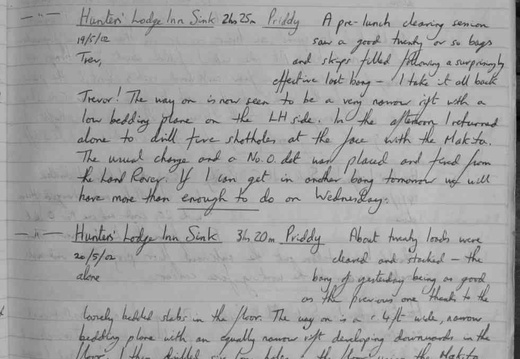 - " - Hunters' Lodge Inn Sink 2h 25m Priddy A pre-lunch clearing session
19/5/02 saw a good twenty or so bags
Trev, and skips filled following a surprisingly
effective last bang - I take it all back
Trevor! The way on is now seen to be a very narrow rift with a
low bedding plane on the LH side. In the afternoon I returned
alone to drill five shotholes at the face with the Makita.
The usual charge and a No. 0 det was placed and fired from
the Land Rover. If I can get in another bang tomorrow we will
have more than enough to do on Wednesday.
- " - Hunters' Lodge Inn Sink 3h 20m Priddy About twenty loads were
20/5/02 cleared and stacked - the
alone bang of yesterday being as good
as the previous one thanks to the
loosely bedded slabs in the floor. The way on is a c 4ft wide, narrow
bedding plane with an equally narrow rift developing downwards in the
floor. I then drilled six holes in the floor using the Makita